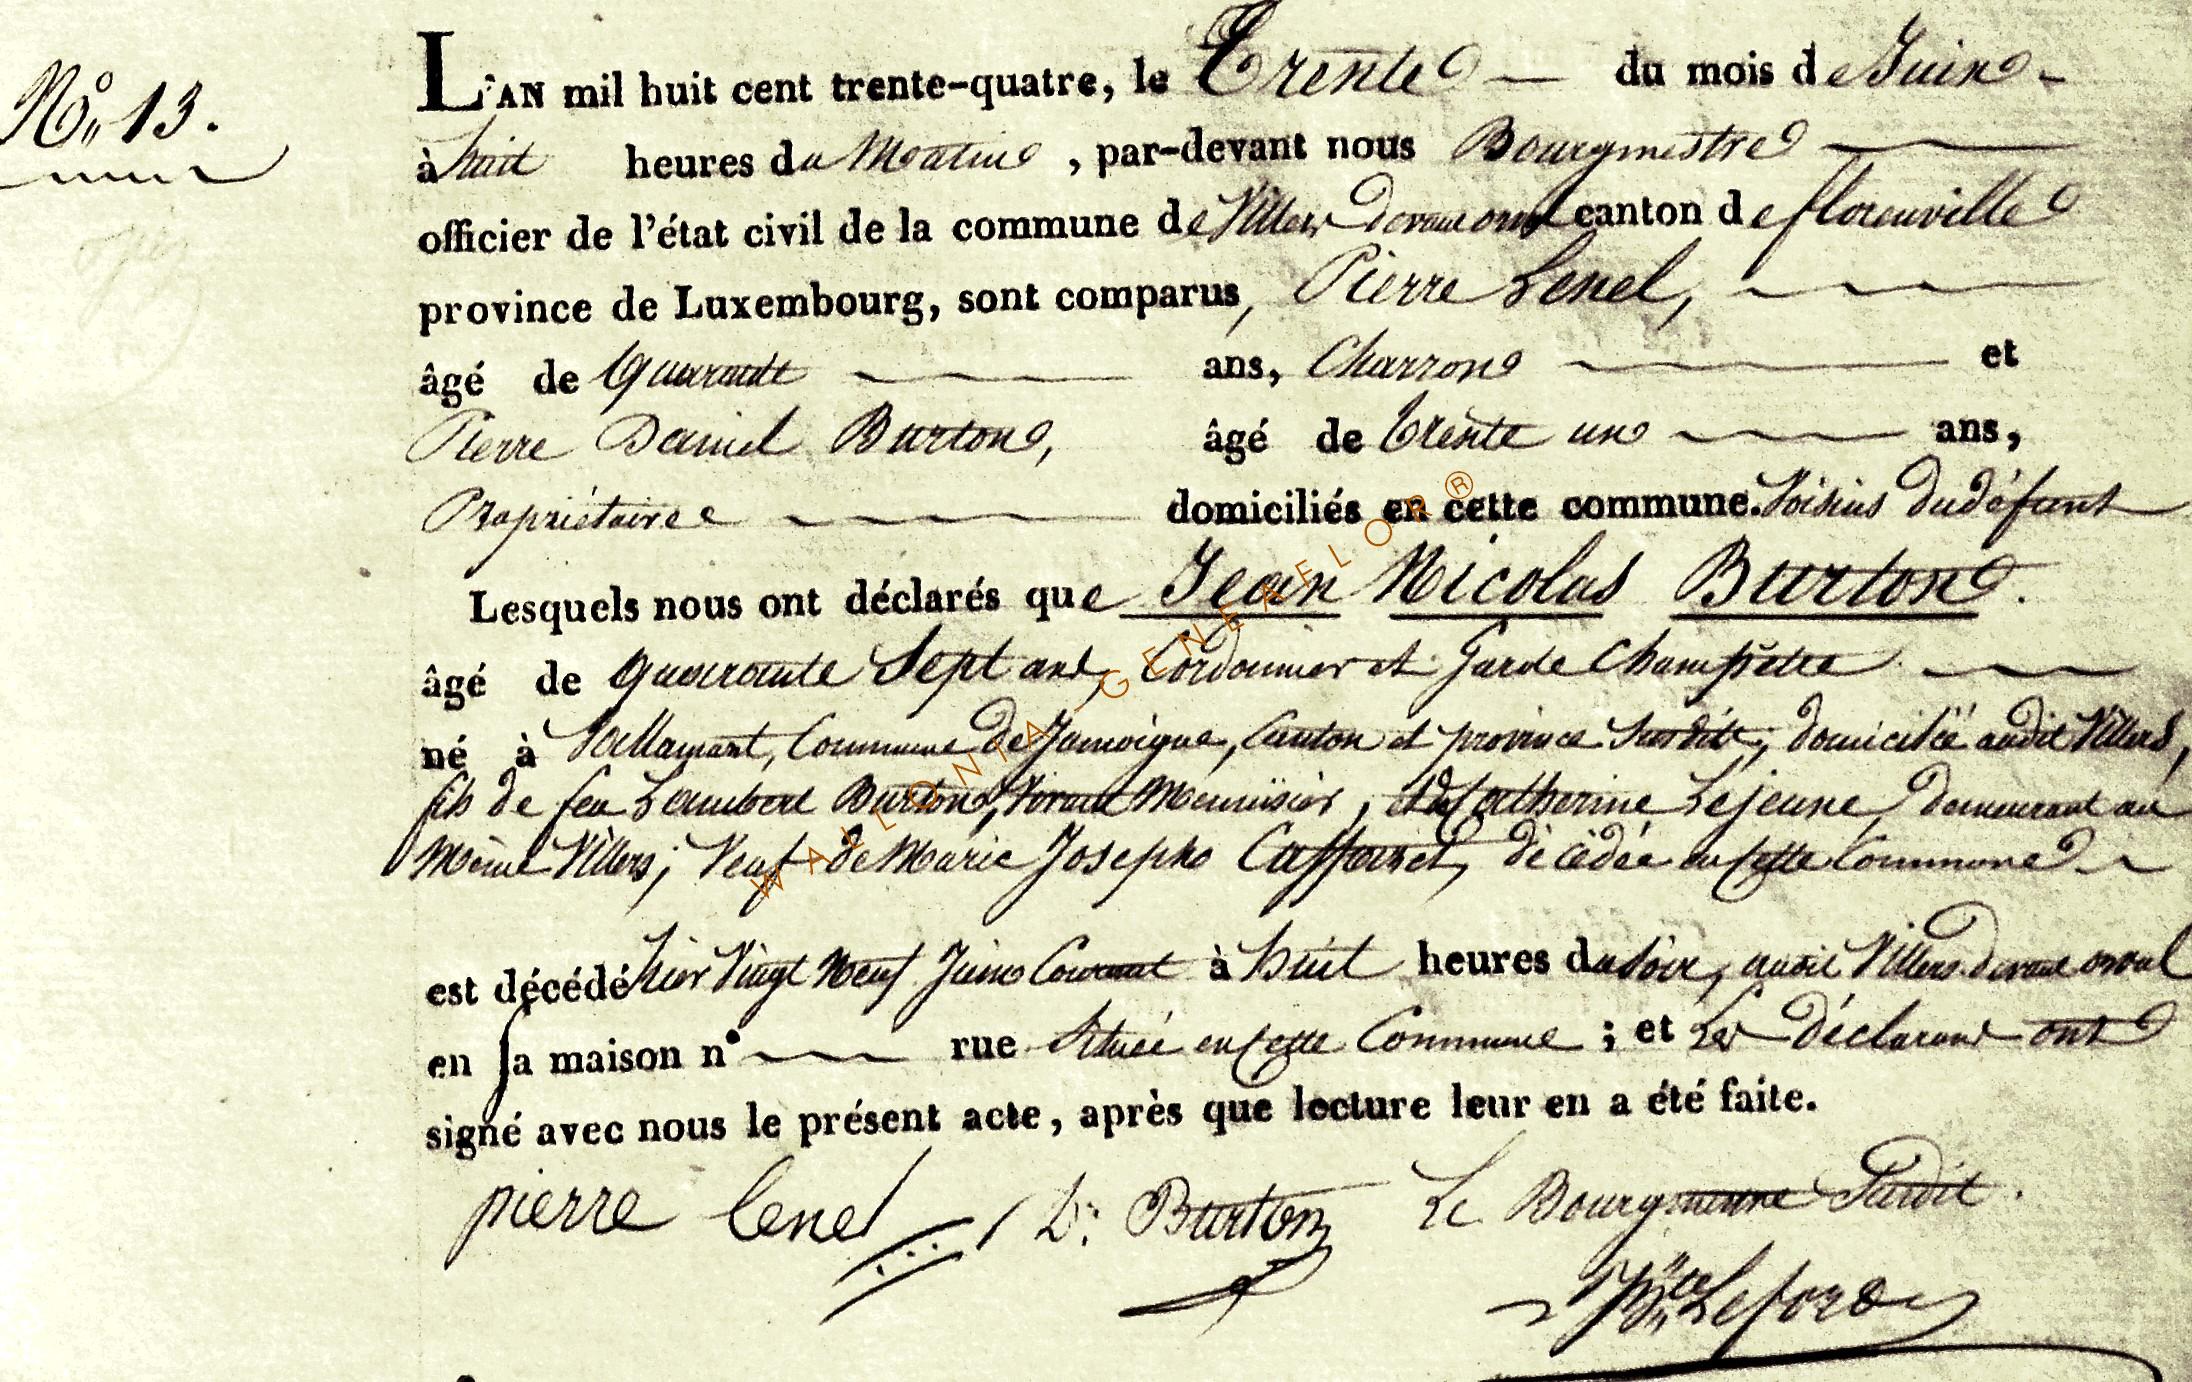 N° 13.
L'AN mil huit cent trente-quatre, le Trente du mois de Juin
à huit heures du Matin, par-devant nous Bourgmestre
officier de l'état civil de la commune de Villers devant orval canton de florenville
province de Luxembourg, sont comparus, Pierre Lenel,
âgé de Quarante ans, Charron et
Pierre Daniel Burton, âgé de trente un ans,
Propriétaire domiciliés en cette commune. Voisins du défunt
Lesquels nous ont déclarés que Jean Nicolas Burton.
âgé de quarante Sept ans, Cordonnier et Garde Champêtre
né à Valansart, Commune de Jamoigne, Canton et province Susdits, domicilié audit Villers,
fils de feu Lambert Burton, vivant Menuisier, et de Catherine Lejeune, demeurant au
Même Villers; Veuf de Marie Josephe décédée en cette Commune
est décédé hier Vingt Neuf Juin Courant à huit heures du soir, audit Villers devant orval
en sa maison n° rue située en cette Commune ; et Les déclarans ont
signé avec nous le présent acte, après que lecture leur en a été faite.
pierre lenel D. Burton Le Bourgmestre Susdit.
Lefort
WALLONIA-GENEAFLOR ®